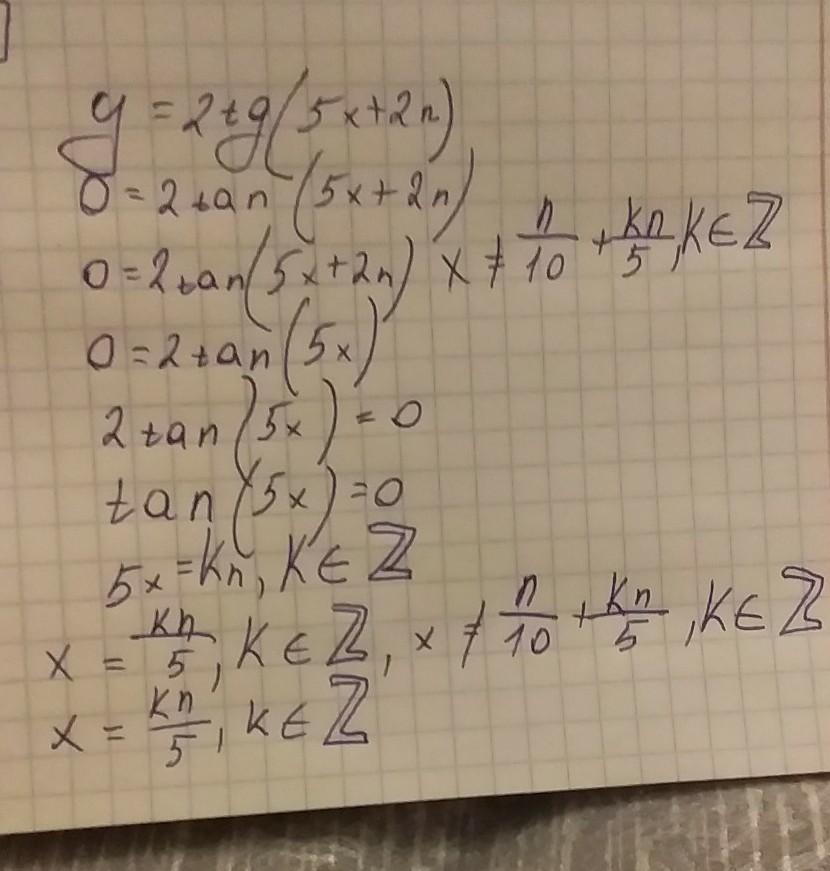 y = 2tg(5x+2п)
0 = 2tan(5x+2п)
0 = 2tan(5x+2п) x ≠ п/10 + kп/5, k ∈ ℤ
0 = 2tan(5x)
2tan(5x) = 0
tan(5x) = 0
5x = kп, k ∈ ℤ
x = kп/5, k ∈ ℤ, x ≠ п/10 + kп/5, k ∈ ℤ
x = kп/5, k ∈ ℤ